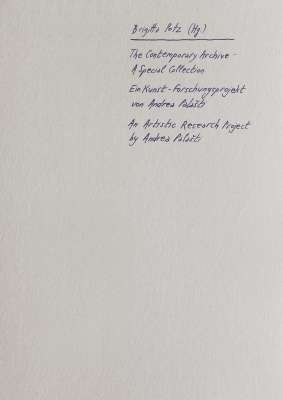 Brigitta Potz (Hg)
The Contemporary Archive -
A Special Collection
Ein Kunst-Forschungsprojekt
von Andrea Palašti
An Artistic Research Project
by Andrea Palašti